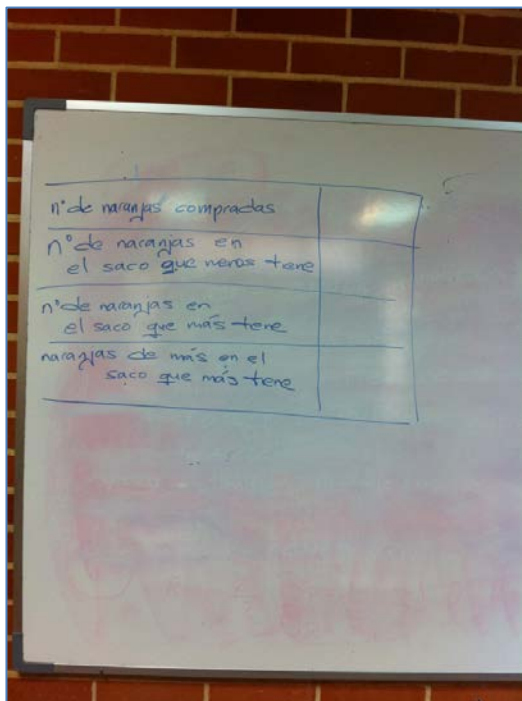 n° de naranjas compradas
n° de naranjas en
el saco que menos tiene
n° de naranjas en
el saco que más tiene
naranjas de más en el
saco que más tiene